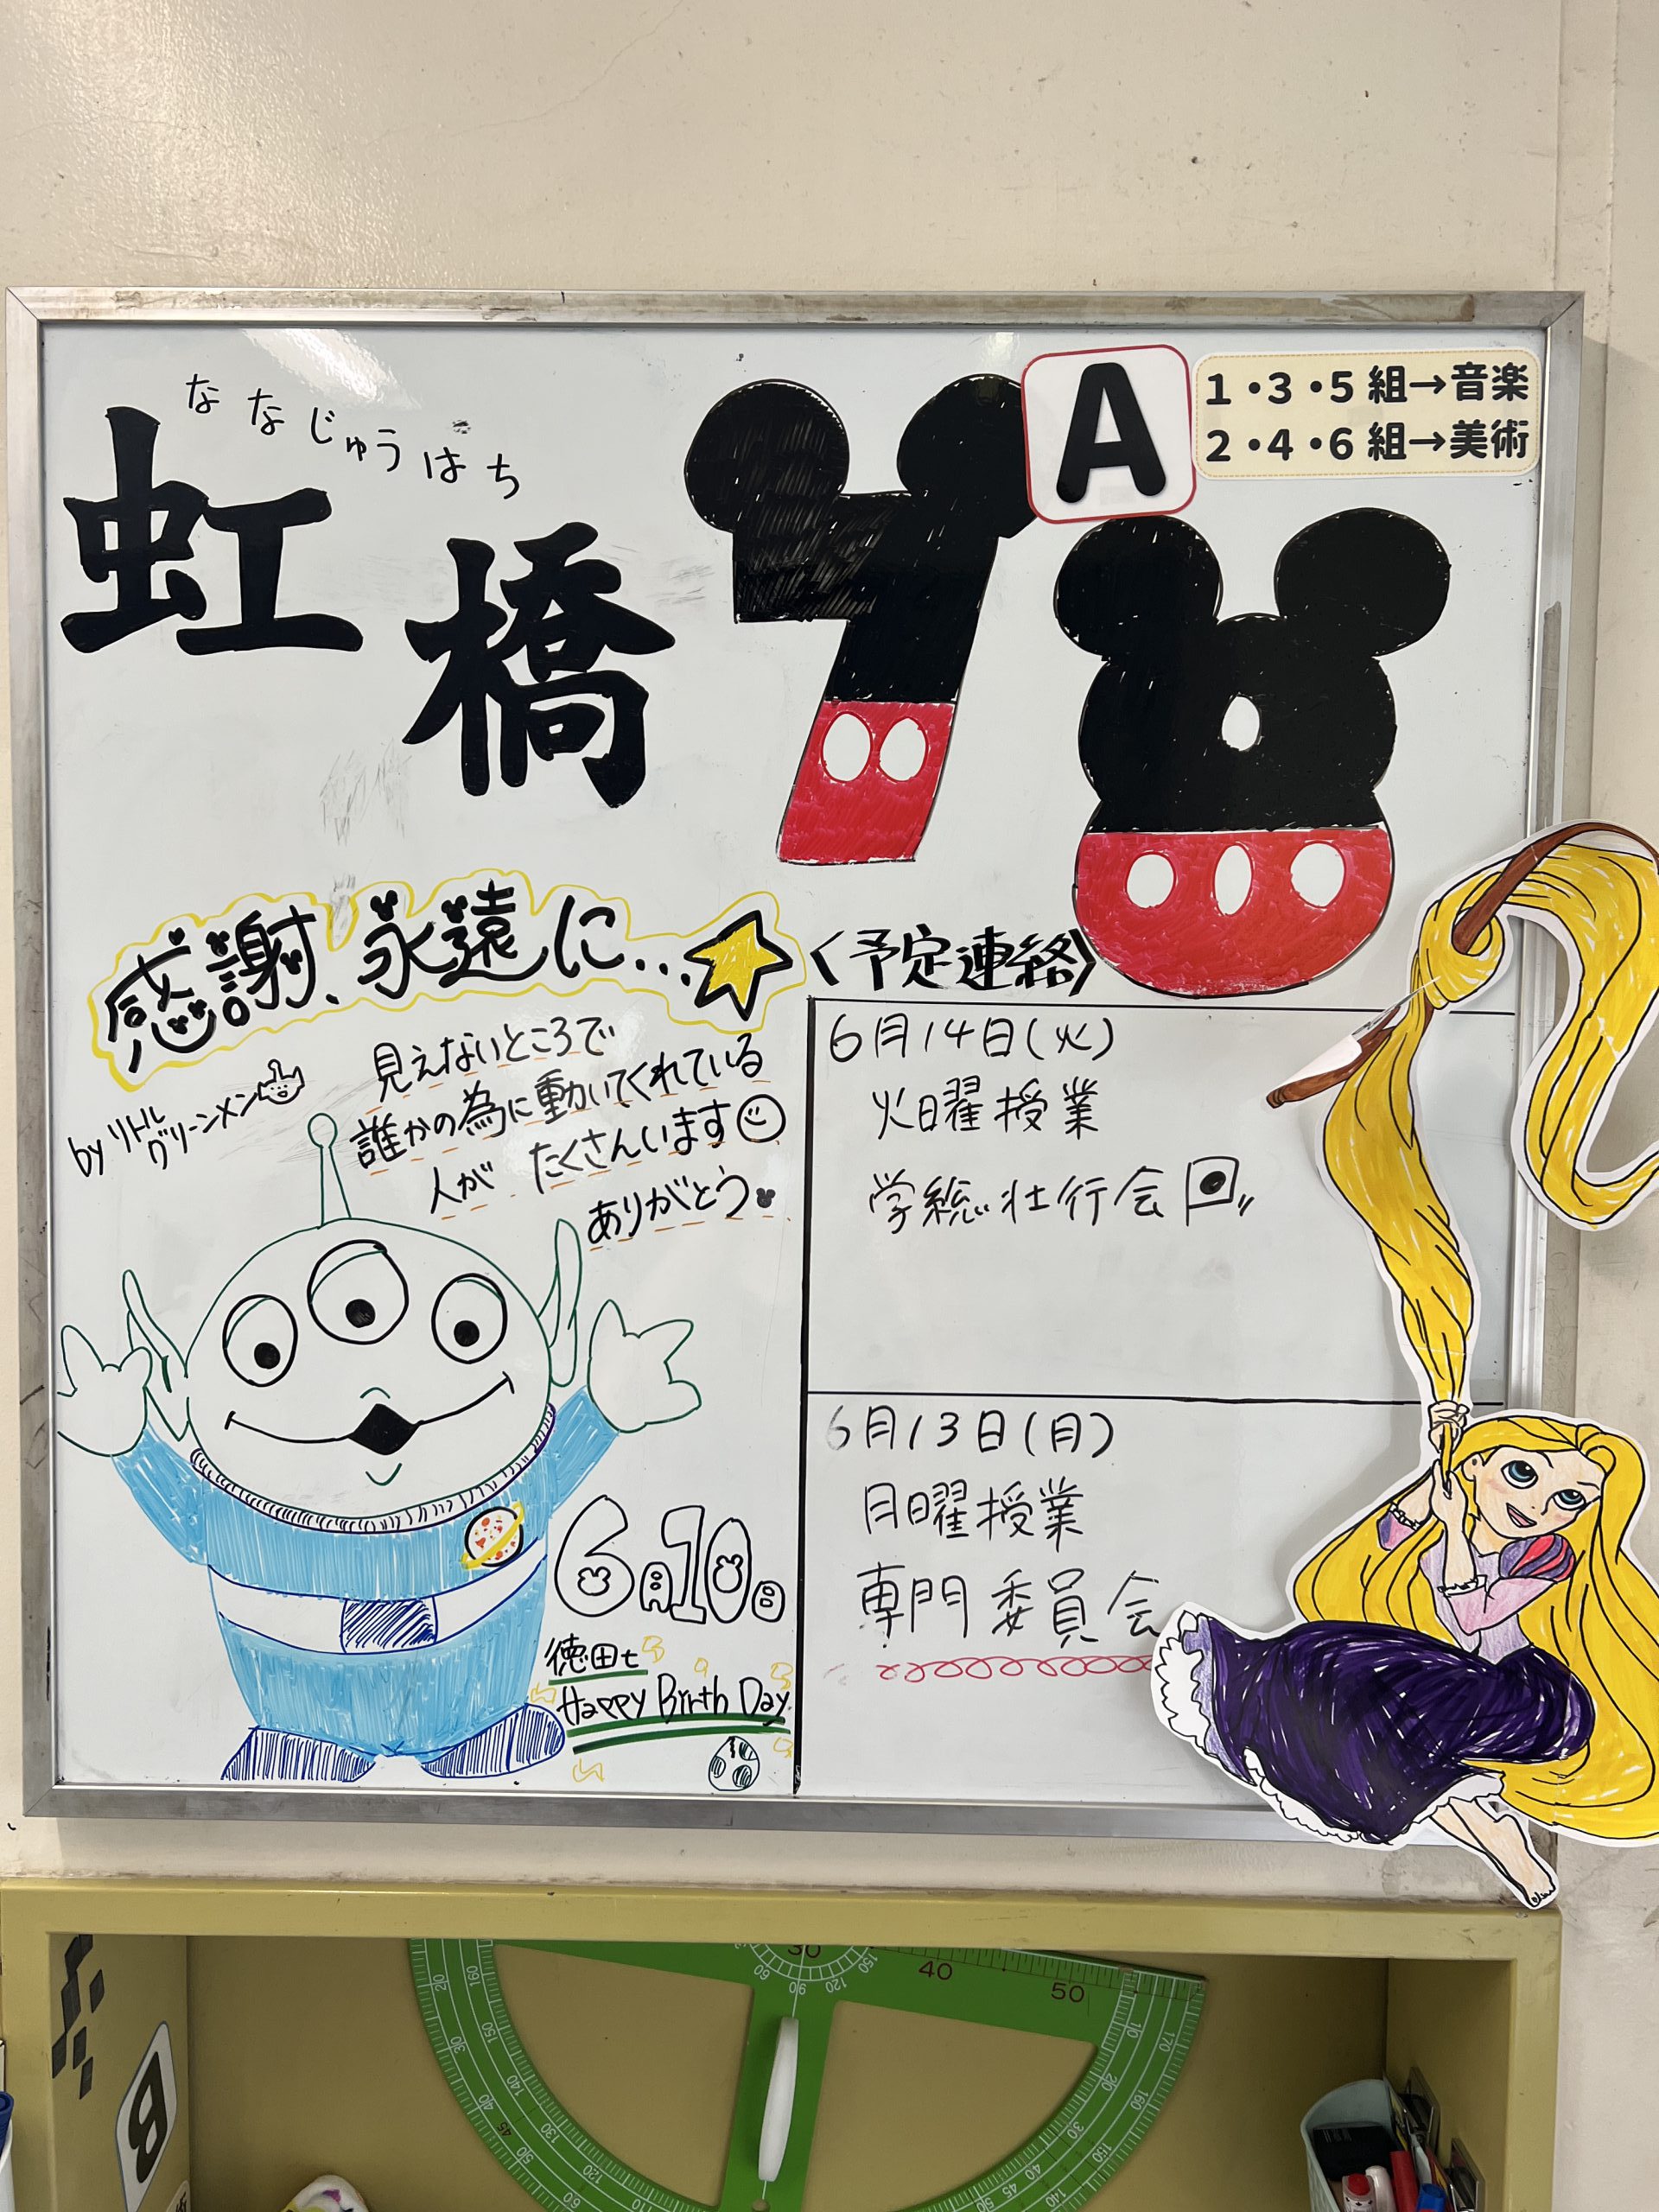 ななじゅうはち
虹橋
78
A
1・3・5組→音楽
2・4・6組→美術
感謝、永遠に…
by リトルグリーンメン
見えないところで
誰かの為に動いてくれている
人が たくさんいます
ありがとう
6月10日
徳田t
Happy Birth Day
〈予定連絡〉
6月14日(火)
火曜授業
学総壮行会
6月13日(月)
月曜授業
専門委員会
30
40
50
B